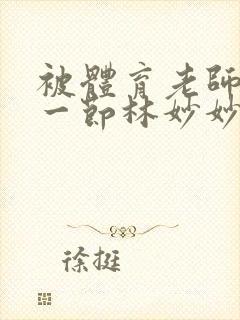 被體育老師
一節林妙妙
徐挺